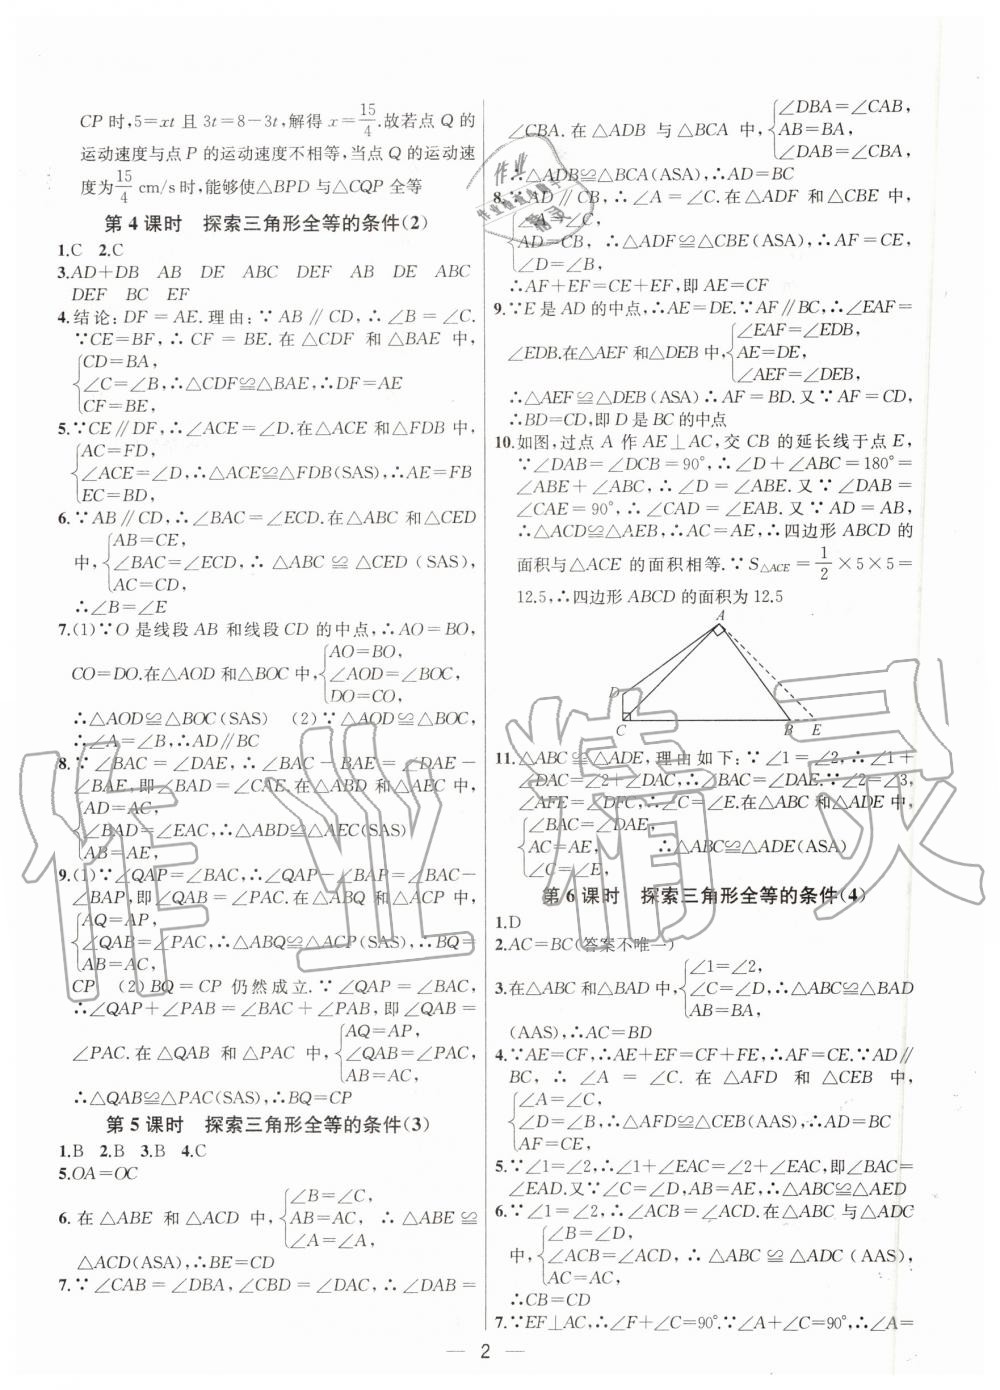 CP时,5=xt 且 3t=8-3t,解得 x=15/4.故若点 Q 的
运动速度与点 P 的运动速度不相等,当点 Q 的运动速
度为15/4 cm/s时,能够使△BPD 与△CQP 全等
第 4 课时 探索三角形全等的条件(2)
1.C 2.C
3.AD+DB AB DE ABC DEF AB DE ABC
DEF BC EF
4.结论:DF=AE.理由:∵AB∥CD,∴∠B=∠C.
∵CE=BF,∴CF=BE.在△CDF 和△BAE 中,
{CD=BA,
∠C=∠B,∴△CDF≌△BAE,∴DF=AE
CF=BE,
5.∵CE∥DF,∴∠ACE=∠D.在△ACE 和△FDB 中,
{AC=FD,
∠ACE=∠D,∴△ACE≌△FDB(SAS),∴AE=FB
EC=BD,
6.∵AB∥CD,∴∠BAC=∠ECD.在△ABC 和△CED
{AB=CE,
中,∠BAC=∠ECD,∴△ABC≌△CED(SAS),
AC=CD,
∴∠B=∠E
7.(1)∵O 是线段 AB 和线段 CD 的中点,∴AO=BO,
{AO=BO,
CO=DO.在△AOD 和△BOC 中,∠AOD=∠BOC,
DO=CO,
∴△AOD≌△BOC(SAS) (2)∵△AOD≌△BOC,
∴∠A=∠B,∴AD∥BC
8.∵∠BAC=∠DAE,∴∠BAC-∠BAE=∠DAE-
∠BAE,即∠BAD=∠CAE.在△ABD 和△AEC 中,
{AD=AC,
∠BAD=∠EAC,∴△ABD≌△AEC(SAS)
AB=AE,
9.(1)∵∠QAP=∠BAC,∴∠QAP-∠BAP=∠BAC-
∠BAP,即∠QAB=∠PAC.在△ABQ 和△ACP 中,
{AQ=AP,
∠QAB=∠PAC,∴△ABQ≌△ACP(SAS),∴BQ=
AB=AC,
CP (2)BQ=CP 仍然成立.∵∠QAP=∠BAC,
∴∠QAP+∠PAB=∠BAC+∠PAB,即∠QAB=
{AQ=AP,
∠PAC.在△QAB 和△PAC 中,∠QAB=∠PAC,
AB=AC,
∴△QAB≌△PAC(SAS),∴BQ=CP
第 5 课时 探索三角形全等的条件(3)
1.B 2.B 3.B 4.C
5.OA=OC
{∠B=∠C,
6.在△ABE 和△ACD 中,AB=AC,∴△ABE≌
∠A=∠A,
△ACD(ASA),∴BE=CD
7.∵∠CAB=∠DBA,∠CBD=∠DAC,∴∠DAB=
{∠DBA=∠CAB,
∠CBA.在△ADB 与△BCA 中,AB=BA,
∠DAB=∠CBA,
∴△ADB≌△BCA(ASA),∴AD=BC
8.∵AD∥CB,∴∠A=∠C.在△ADF 和△CBE 中,
{∠A=∠C,
AD=CB,∴△ADF≌△CBE(ASA),∴AF=CE,
∠D=∠B,
∴AF+EF=CE+EF,即AE=CF
9.∵E 是 AD 的中点,∴AE=DE.∵AF∥BC,∴∠EAF=
{∠EAF=∠EDB,
∠EDB.在△AEF 和△DEB 中,AE=DE,
∠AEF=∠DEB,
∴△AEF≌△DEB(ASA)∴AF=BD.又∵AF=CD,
∴BD=CD,即 D 是 BC 的中点
10.如图,过点 A 作 AE⊥AC,交 CB 的延长线于点 E,
∵∠DAB=∠DCB=90°,∴∠D+∠ABC=180°=
∠ABE+∠ABC,∴∠D=∠ABE.又∵∠DAB=
∠CAE=90°,∴∠CAD=∠EAB.又∵AD=AB,
∴△ACD≌△AEB,∴AC=AE,∴四边形 ABCD 的
面积与△ACE 的面积相等.∵S△ACE=1/2×5×5=
12.5,∴四边形 ABCD 的面积为 12.5
A
D
C B E
11.△ABC≌△ADE,理由如下:∵∠1=∠2,∴∠1+
∠DAC=∠2+∠DAC,∴∠BAC=∠DAE.∵∠2=∠3,
∠AFE=∠DFC,∴∠C=∠E.在△ABC 和△ADE 中,
{∠BAC=∠DAE,
AC=AE, ∴△ABC≌△ADE(ASA)
∠C=∠E,
第 6 课时 探索三角形全等的条件(4)
1.D
2.AC=BC(答案不唯一)
{∠1=∠2,
3.在△ABC 和△BAD 中,∠C=∠D,∴△ABC≌△BAD
AB=BA,
(AAS),∴AC=BD
4.∵AE=CF,∴AE+EF=CF+FE,∴AF=CE.∵AD∥
BC,∴∠A=∠C.在△AFD 和△CEB 中,
{∠A=∠C,
∠D=∠B,∴△AFD≌△CEB(AAS),∴AD=BC
AF=CE,
5.∵∠1=∠2,∴∠1+∠EAC=∠2+∠EAC,即∠BAC=
∠EAD.又∵∠C=∠D,AB=AE,∴△ABC≌△AED
6.∵∠1=∠2,∴∠ACB=∠ACD.在△ABC 与△ADC
{∠B=∠D,
中,∠ACB=∠ACD,∴△ABC≌△ADC(AAS),
AC=AC,
∴CB=CD
7.∵EF⊥AC,∴∠F+∠C=90°.∵∠A+∠C=90°,∴∠A=
2
作业精灵